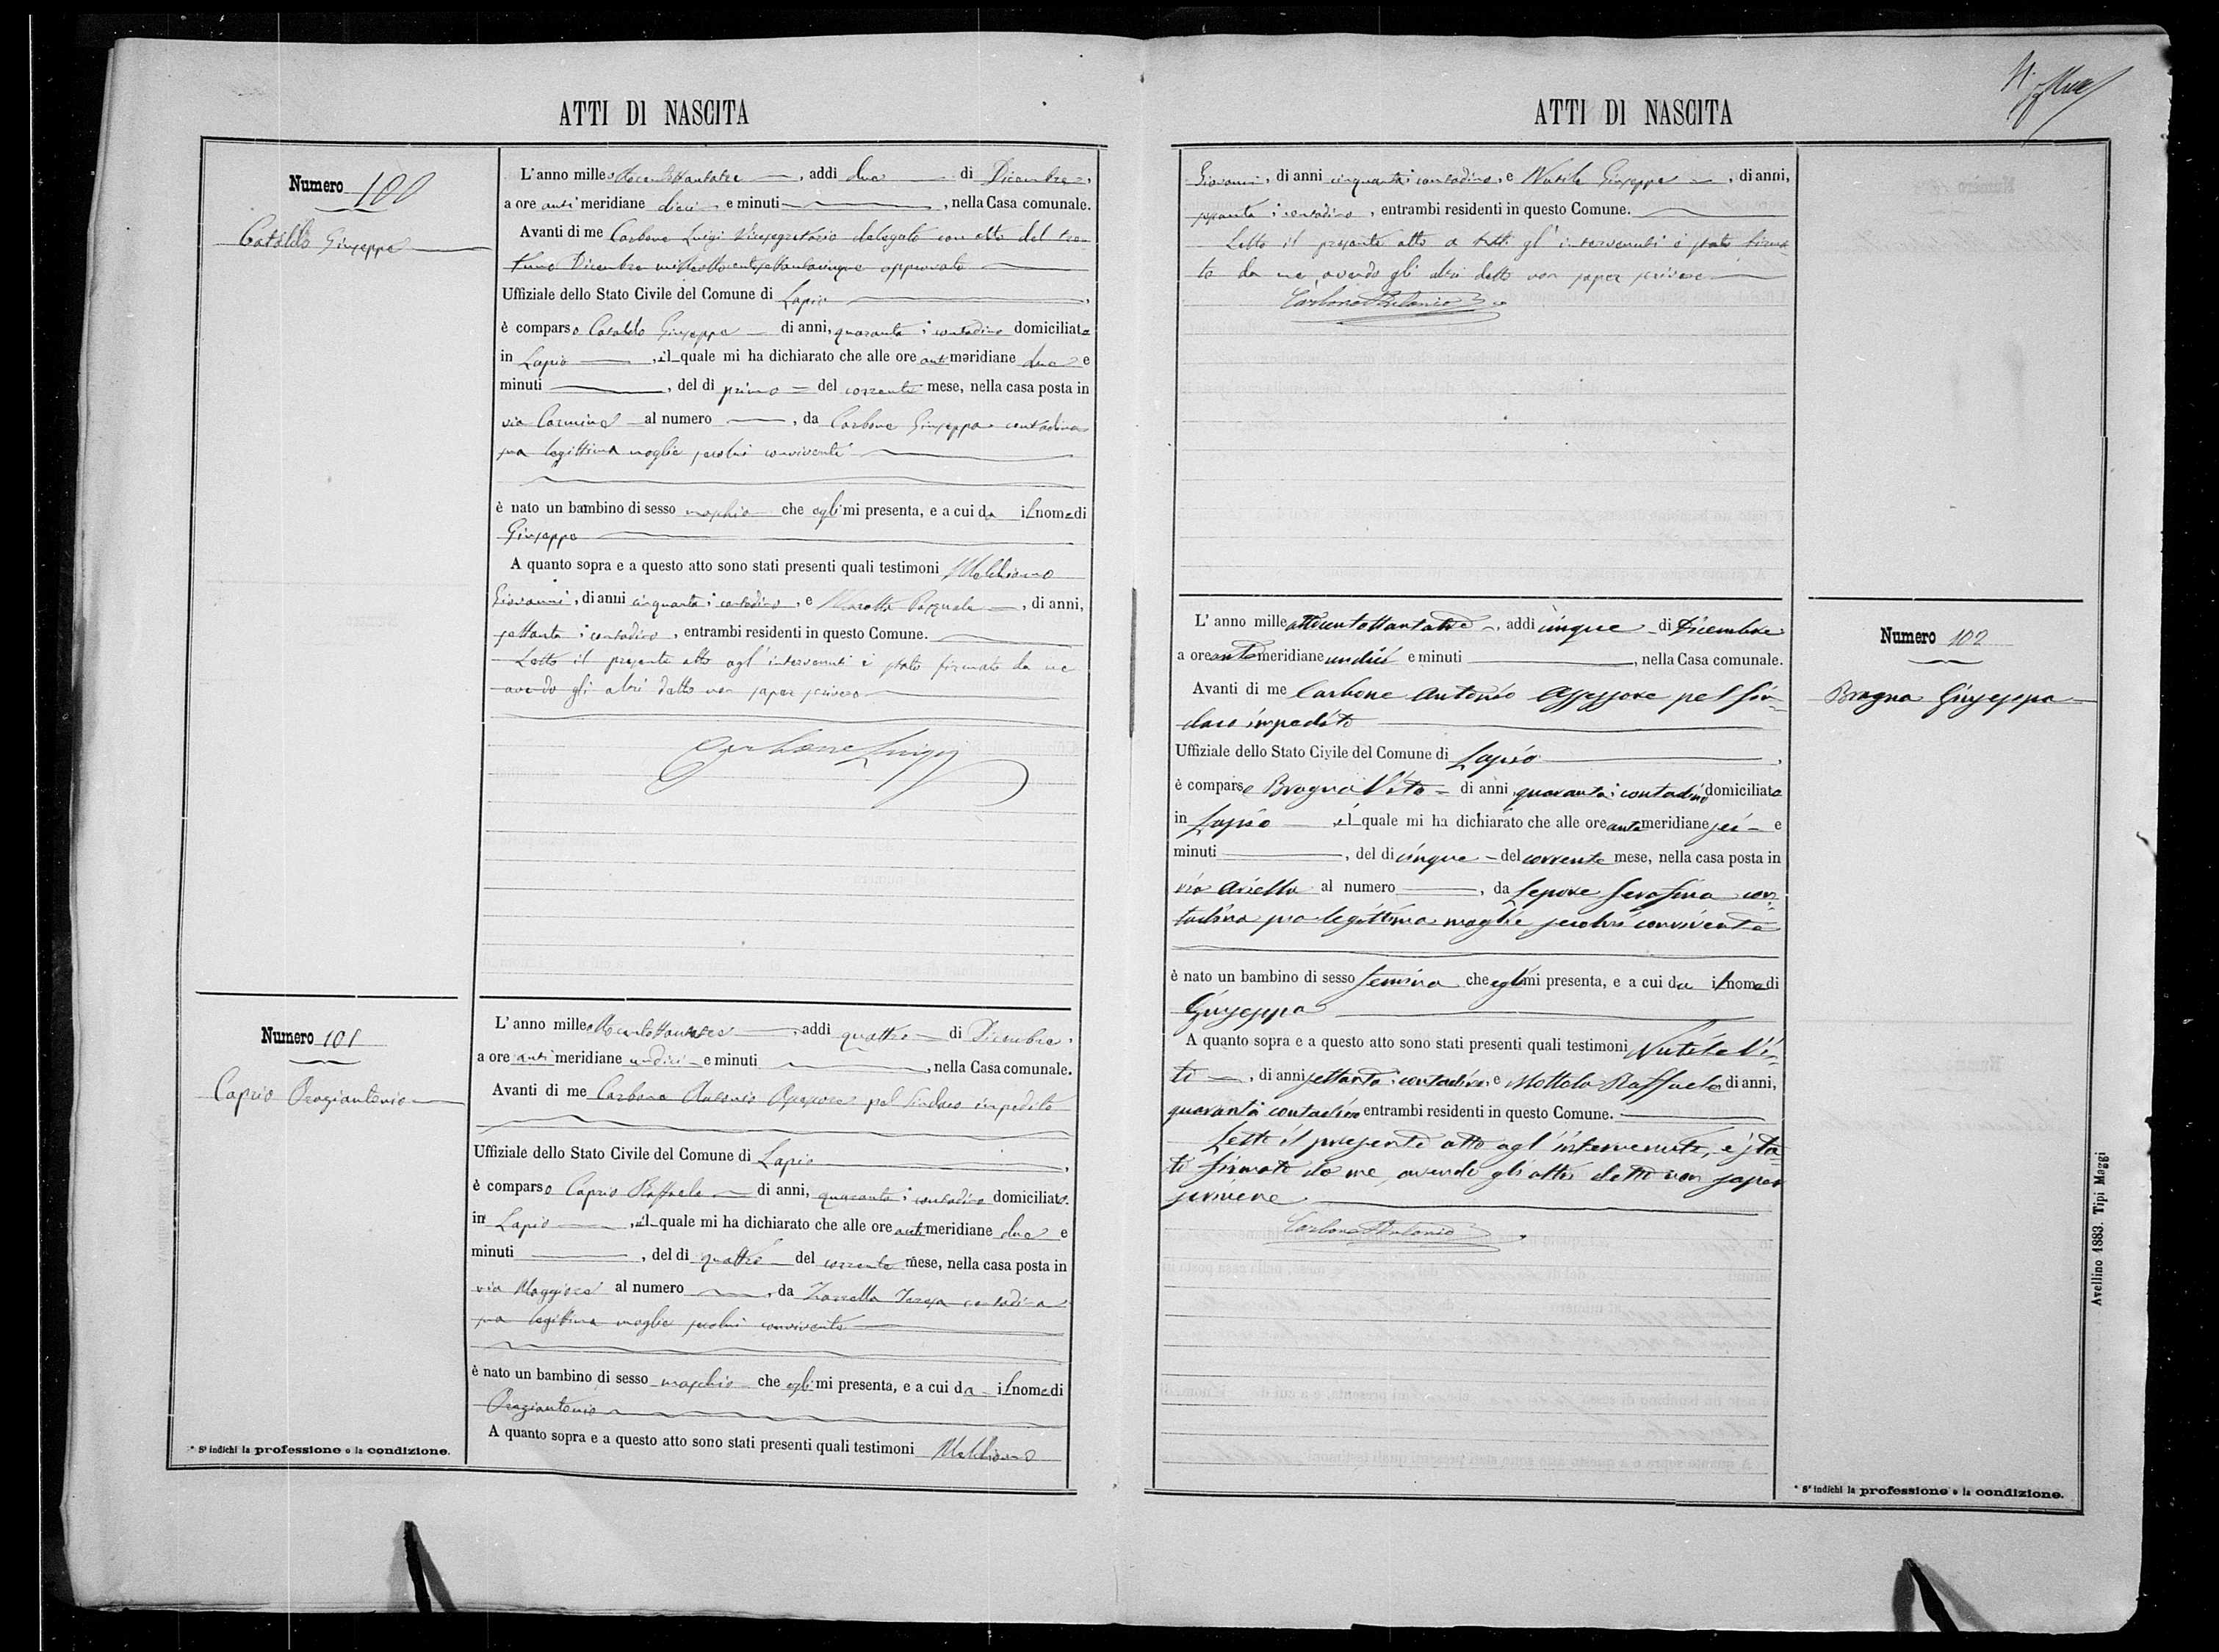 ATTI DI NASCITA
Numero 100
Cataldo Giuseppe
L'anno mille ottocentottantatre, addì due di Dicembre,
a ore anti meridiane dieci e minuti, nella Casa comunale.
Avanti di me Carbone Luigi Vicesegretario delegato con atto del tren
tuno Dicembre milleottocentosettantacinque approvato
Uffiziale dello Stato Civile del Comune di Lapio,
è comparso Cataldo Giuseppe di anni, quaranta; contadino domiciliato
in Lapio, il quale mi ha dichiarato che alle ore anti meridiane due e
minuti, del dì primo del corrente mese, nella casa posta in
via Carmine al numero, da Carbone Giuseppa contadina
sua legittima moglie secolui convivente
è nato un bambino di sesso maschio che egli mi presenta, e a cui da il nome di
Giuseppe
A quanto sopra e a questo atto sono stati presenti quali testimoni Melchionno
Giovanni, di anni cinquanta; contadino, e Pasquale, di anni,
settanta; contadino, entrambi residenti in questo Comune.
Letto il presente atto agl'intervenuti è stato firmato da me
avendo gli altri detto non saper scrivere
Carbone Luigi
Numero 101
Caprio Oraziantonio
L'anno mille ottocentottantatre, addì quattro di Dicembre,
a ore anti meridiane undici e minuti, nella Casa comunale.
Avanti di me Carbone Antonio Assessore pel Sindaco impedito
Uffiziale dello Stato Civile del Comune di Lapio,
è comparso Caprio Raffaele di anni, quaranta; contadino domiciliato
in Lapio, il quale mi ha dichiarato che alle ore anti meridiane due e
minuti, del dì quattro del corrente mese, nella casa posta in
via Maggiore al numero, da Zarrella Teresa contadina
sua legittima moglie secolui convivente
è nato un bambino di sesso maschio che egli mi presenta, e a cui da il nome di
Oraziantonio
A quanto sopra e a questo atto sono stati presenti quali testimoni Melchionno
* S' indichi la professione o la condizione.
ATTI DI NASCITA
Giovanni, di anni cinquanta; contadino, e Nutile Giuseppe, di anni,
sessanta; contadino, entrambi residenti in questo Comune.
Letto il presente atto a tutti gl'intervenuti è stato firma
to da me, avendo gli altri detto non saper scrivere
Carbone Antonio
Numero 102
Bragna Giuseppa
L'anno mille ottocentottantatre, addì cinque di Dicembre
a ore ante meridiane undici e minuti, nella Casa comunale.
Avanti di me Carbone Antonio Assessore pel Sin-
daco impedito
Uffiziale dello Stato Civile del Comune di Lapio,
è comparso Bragna Vito di anni, quaranta; contadino domiciliato
in Lapio, il quale mi ha dichiarato che alle ore ante meridiane sei e
minuti, del dì cinque del corrente mese, nella casa posta in
via Ariella al numero, da Lepore Serafina con-
tadina sua legittima moglie, secolui convivente
è nato un bambino di sesso femina che egli mi presenta, e a cui da il nome di
Giuseppa
A quanto sopra e a questo atto sono stati presenti quali testimoni Nutile Vi-
to, di anni settanta; contadino, e Mottola Raffaele di anni,
quaranta contadino entrambi residenti in questo Comune.
Letto il presente atto agl'intervenuti, è sta-
to firmato da me, avendo gli altri detto non saper
scrivere
Carbone Antonio
Avellino 1883. Tipi Maggi
* S' indichi la professione o la condizione.